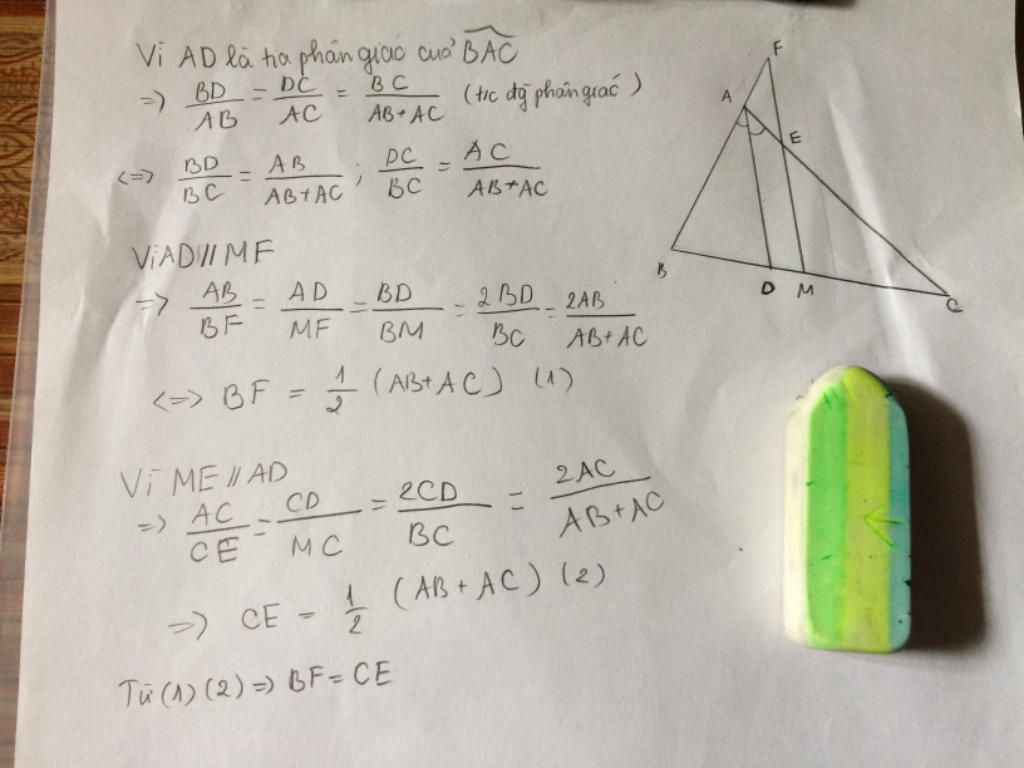 Vì AD là tia phân giác cuả BAC
=> BD/AB = DC/AC = BC/(AB+AC) (t/c đg phân giác)
<=> BD/BC = AB/(AB+AC) ; DC/BC = AC/(AB+AC)
Vì AD // MF
=> AB/BF = AD/MF = BD/BM = 2BD/BC = 2AB/(AB+AC)
<=> BF = 1/2 (AB+AC) (1)
Vì ME // AD
=> AC/CE = CD/MC = 2CD/BC = 2AC/(AB+AC)
=> CE = 1/2 (AB+AC) (2)
Từ (1) (2) => BF = CE
F
A
E
B
D M
C